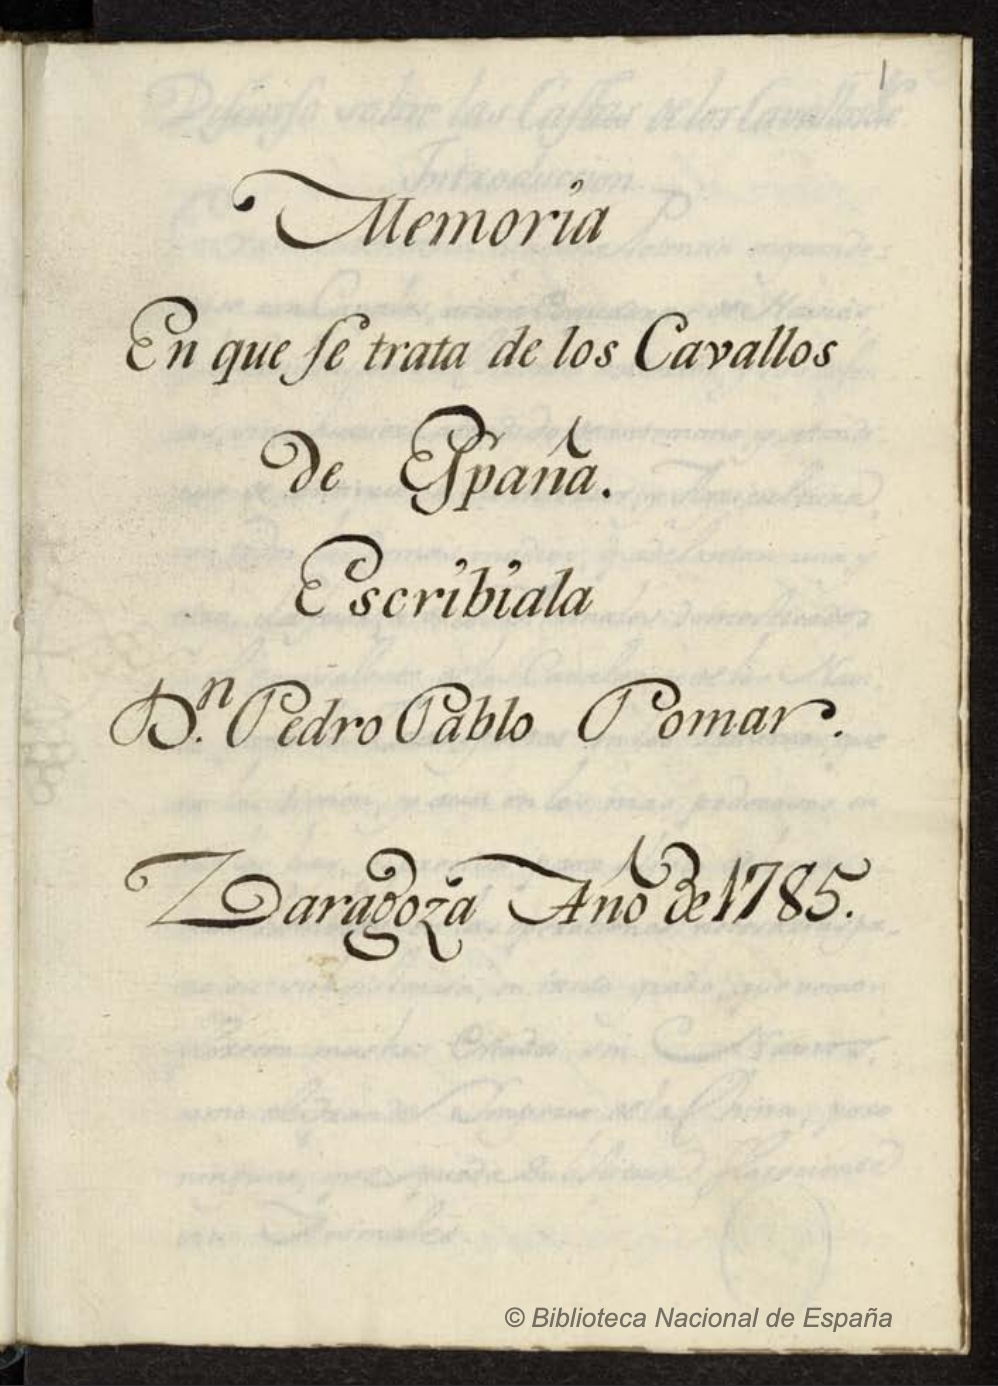 1
Memoria
En que se trata de los Cavallos
de España.
Escribiala
D.n Pedro Pablo Pomar.
Zaragoza Año de 1785.
© Biblioteca Nacional de España